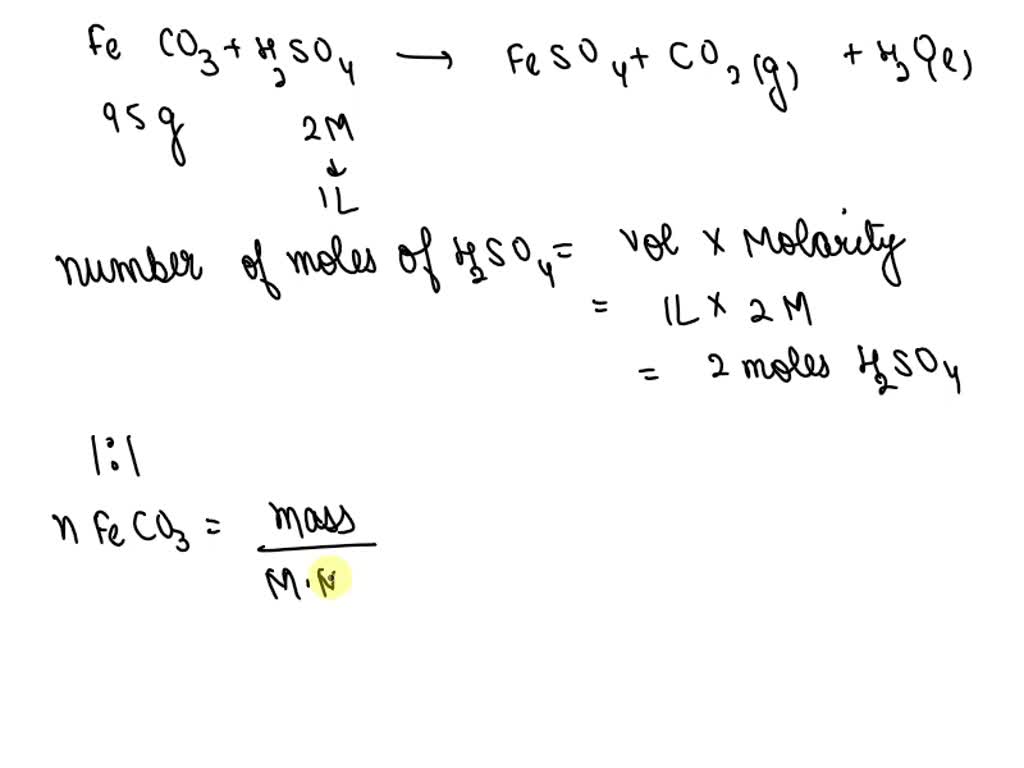 Fe CO₃ + H₂SO₄ → FeSO₄ + CO₂(g) + H₂O(l)
95g 2M
↓
1L
number of moles of H₂SO₄ = vol × Molarity
= 1L × 2M
= 2 moles H₂SO₄
1:1
n FeCO₃ = mass
M.M